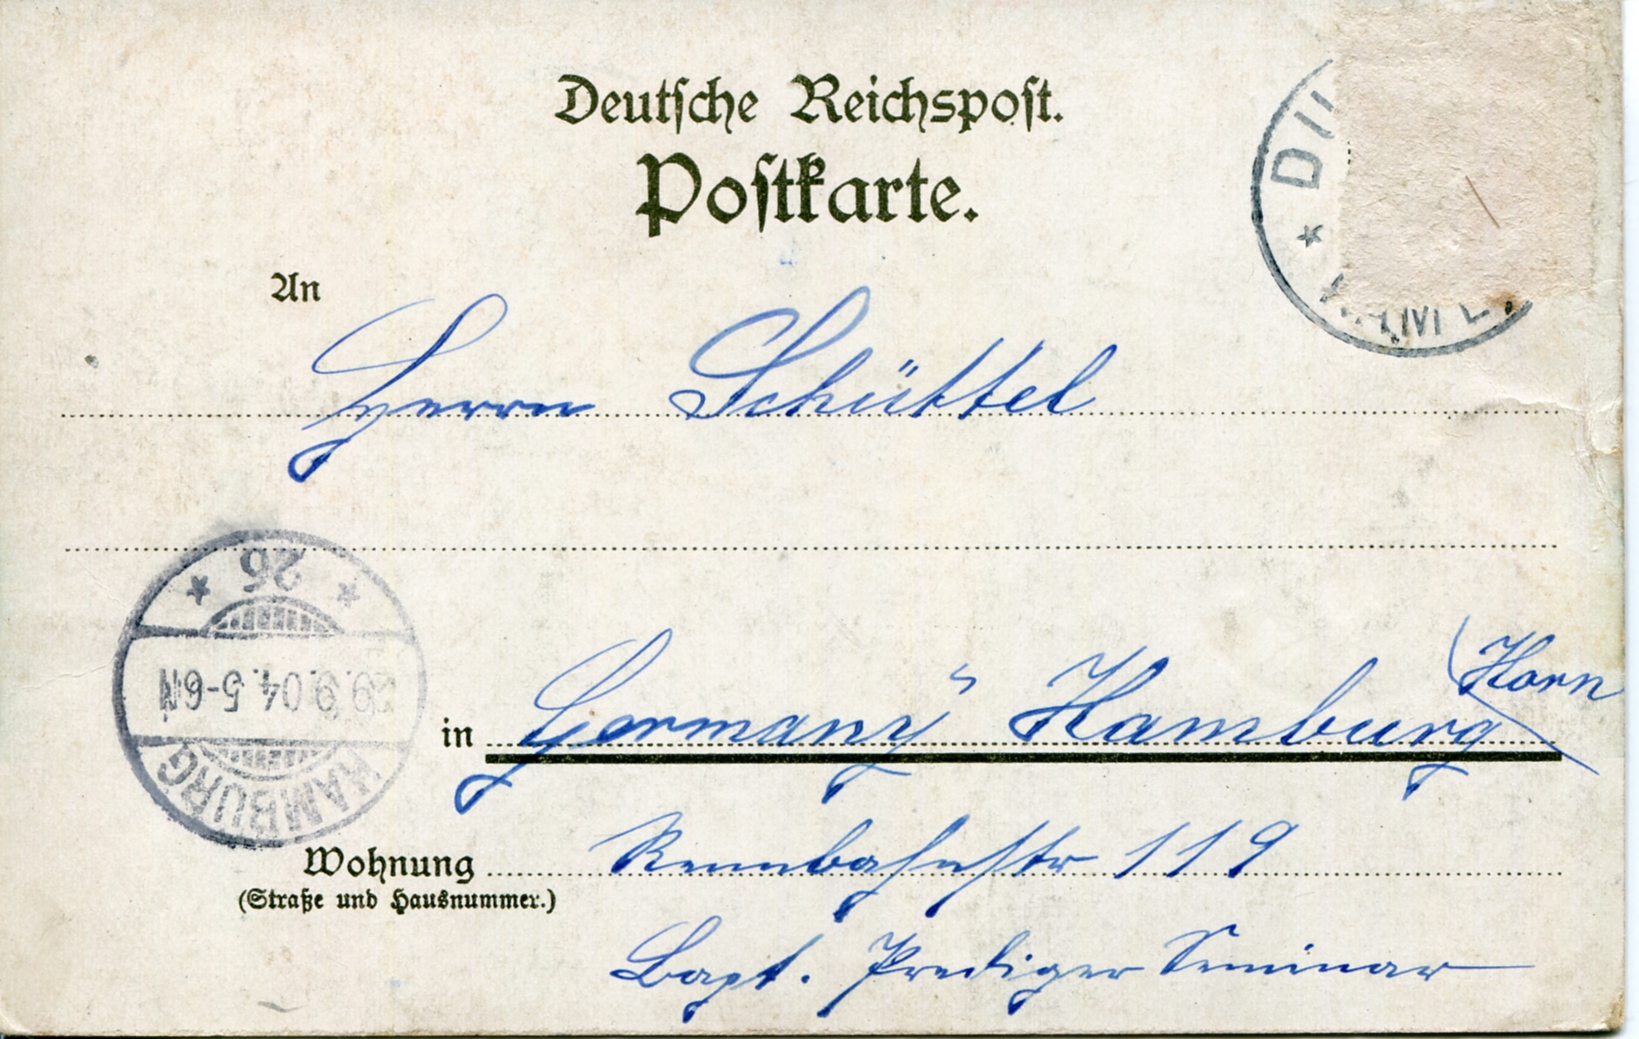 Deutsche Reichspost.
Postkarte.
An
Herrn Schüttel
in Germany Hamburg (Horn
Wohnung Rennbahnstr 119
(Straße und Hausnummer.)
Bapt. Prediger Seminar
26
9.9.04.5-6N
HAMBURG